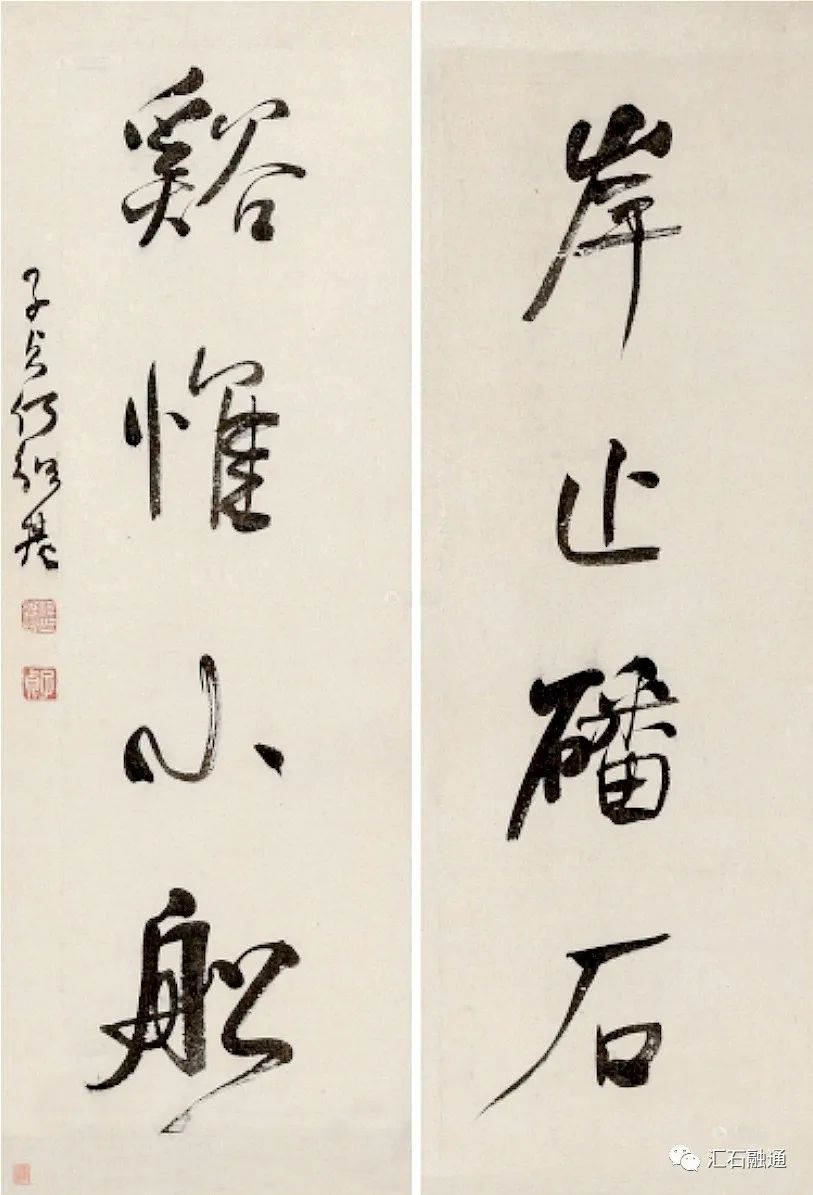 岸止磻石
谿惟小船
子貞何紹基
汇石融通